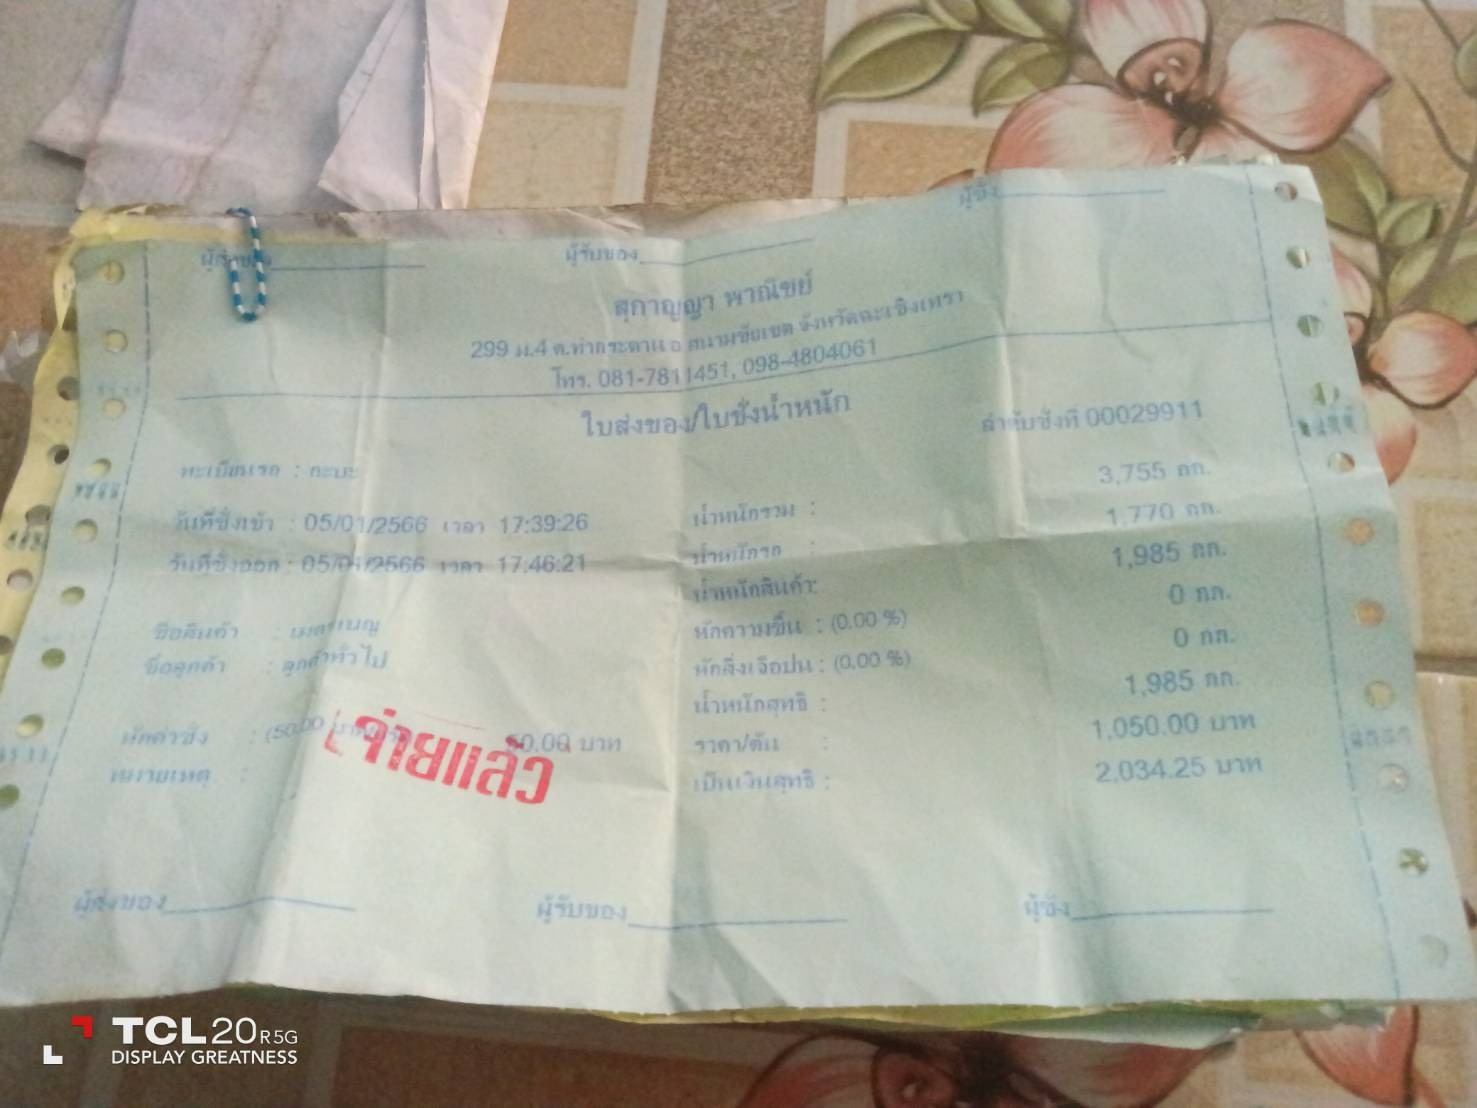 ผู้ส่งของ ผู้รับของ ผู้ชั่ง
สุกาญญา พาณิชย์
299 ม.4 ต.ท่ากระดาน อ สนามชัยเขต จังหวัดฉะเชิงเทรา
โทร. 081-7811451, 098-4804061
ใบส่งของ/ใบชั่งน้ำหนัก
ลำดับชั่งที่ 00029911
ทะเบียนรถ : กะบะ
วันที่ชั่งเข้า : 05/01/2566 เวลา 17:39:26
วันที่ชั่งออก : 05/01/2566 เวลา 17:46:21
ชื่อสินค้า :
ชื่อลูกค้า : ลูกค้าทั่วไป
หักค่าชั่ง : (50.00 50.00 บาท
หมายเหตุ :
จ่ายแล้ว
น้ำหนักรวม : 3,755 กก.
น้ำหนักรถ : 1,770 กก.
น้ำหนักสินค้า: 1,985 กก.
หักความชื้น : (0.00 %) 0 กก.
หักสิ่งเจือปน : (0.00 %) 0 กก.
น้ำหนักสุทธิ : 1,985 กก.
ราคา/ตัน : 1,050.00 บาท
เป็นเงินสุทธิ : 2,034.25 บาท
ผู้ส่งของ ผู้รับของ ผู้ชั่ง
TCL 20 R 5G
DISPLAY GREATNESS